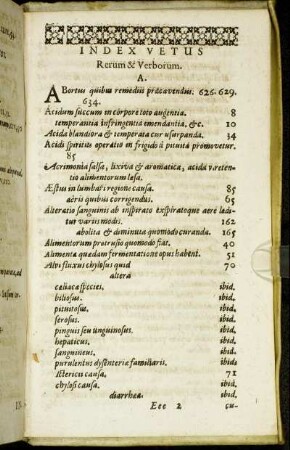 INDEX VETUS
Rerum & Verborum.
A.
ABortus quibus remediis præcavendus. 626. 629.
634.
Acidum succum in corpore toto augentia. 8
temperantia infringentia emendantia, &c. 10
Acida blandiora & temperata cur usurpanda. 34
Acidi spiritus operatio in frigido à pituita promovetur.
85
Acrimonia salsa, lixiva & aromatica, acida & retentio alimentorum læsa.
Æstus in lumbari regione causa. 85
aëris quibus corrigendus. 65
Alteratio sanguinis ab inspirato expiratoque aere læditur variis modis. 162
abolita & diminuta quomodo curanda. 165
Alimentorum protrusio quomodo fiat. 40
Alimenta quædam fermentatione opus habent. 51
Alvi fluxus chylosus quid 70
altera
celiaca species. ibid.
biliosus. ibid.
pituitosus. ibid.
serosus. ibid.
pinguis seu unguinosus. ibid.
hepaticus. ibid.
sanguineus. ibid.
purulentus dysenteriæ familiaris. ibid.
Ictericis causa. 71
chylosi causa. ibid.
diarrhæa. ibid.
Eee 2 cu-